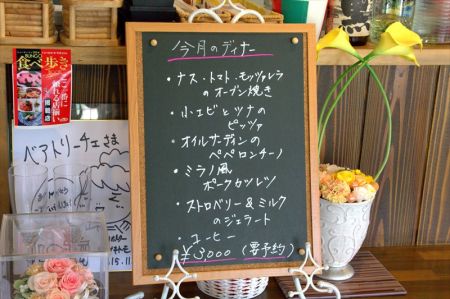 今月のディナー
・ナス・トマト・モッツァレラ
のオーブン焼き
・小エビとツナの
ピッツァ
・オイルサーディンの
ペペロンチーノ
・ミラノ風
ポークカツレツ
・ストロベリー&ミルク
のジェラート
・コーヒー
¥3,000（要予約）
食べ歩き
ベアトリーチェさま